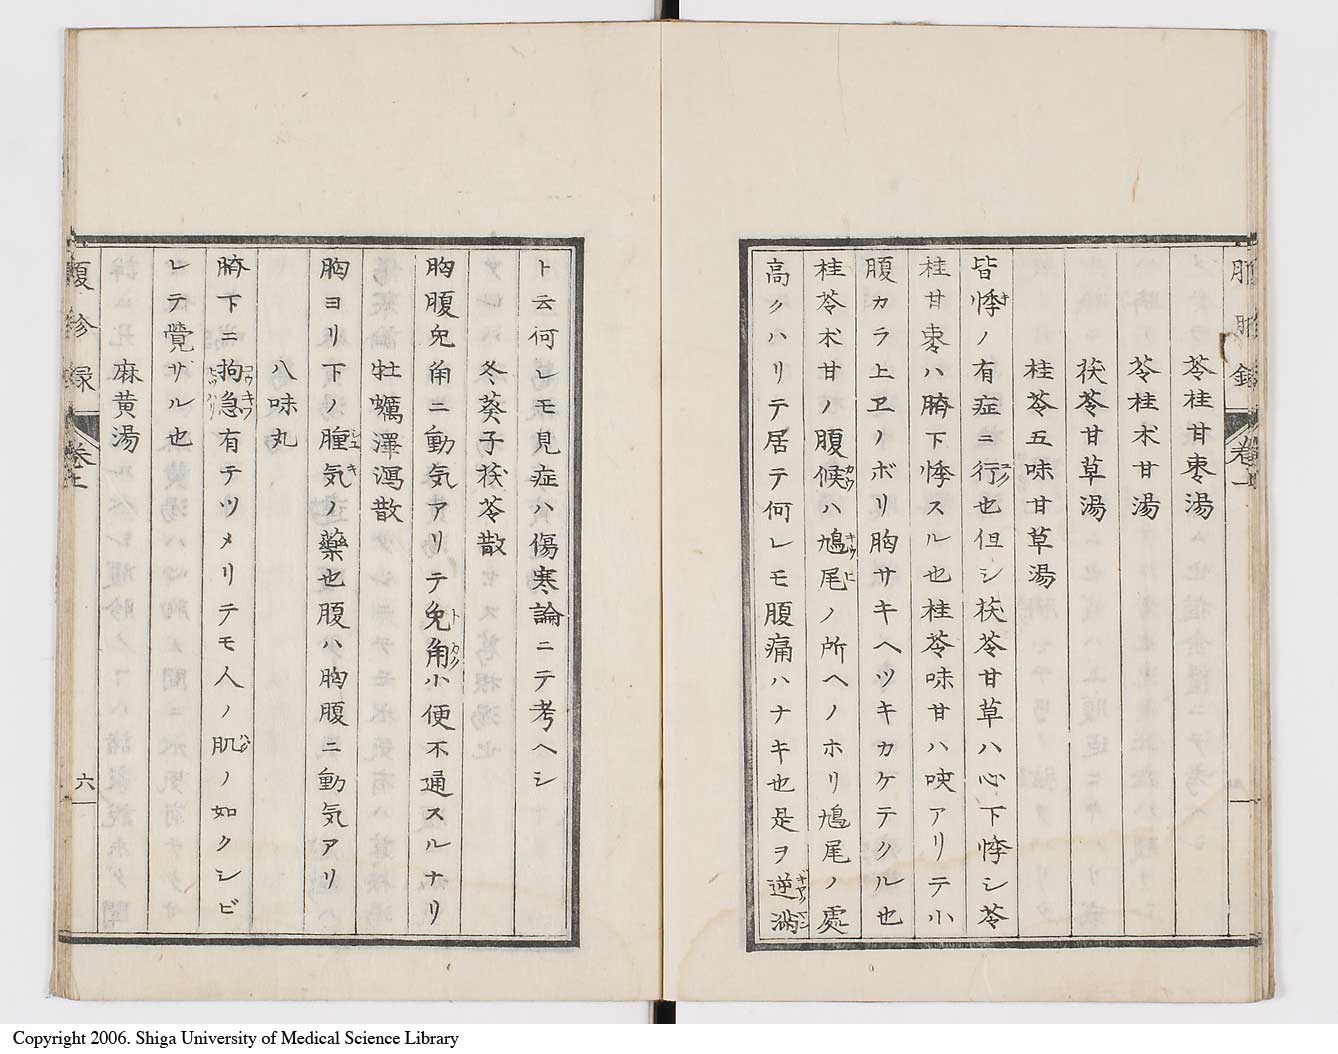 苓桂甘棗湯
苓桂朮甘湯
茯苓甘草湯
桂苓五味甘草湯
皆悸ノ有症ニ行也但シ茯苓甘草ハ心下悸シ苓
桂甘棗ハ臍下悸スル也桂苓味甘ハ咳アリテ小
腹カラ上ヱノボリ胸サキヘツキカケテクル也
桂苓朮甘ノ腹候ハ鳩尾ノ所ヘノホリ鳩尾ノ處
高クハリテ居テ何レモ腹痛ハナキ也是ヲ逆満
ト云何レモ見症ハ傷寒論ニテ考ヘシ
冬葵子茯苓散
胸腹兔角ニ動気アリテ兔角小便不通スルナリ
牡蠣澤瀉散
胸ヨリ下ノ腫気ノ藥也腹ハ胸腹ニ動気アリ
八味丸
臍下ニ拘急有テツメリテモ人ノ肌ノ如クシビ
レテ覺サル也
麻黄湯
六
Copyright 2006. Shiga University of Medical Science Library